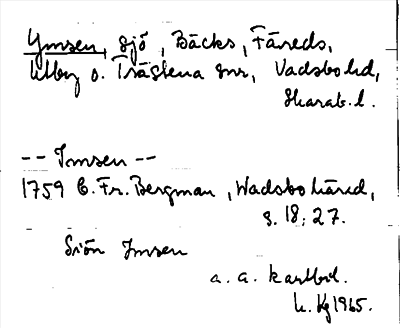 Ymsen, sjö, Bäcks, Färeds,
Ullerv o. Trästena snr, Vadsbo hd,
Skarab. l.
-- Imsen --
1759 C. Fr. Bergman, Wadsbo härad,
s. 18; 27.
Siön Imsen
a. a. kartbil.
h. Kg 1965.